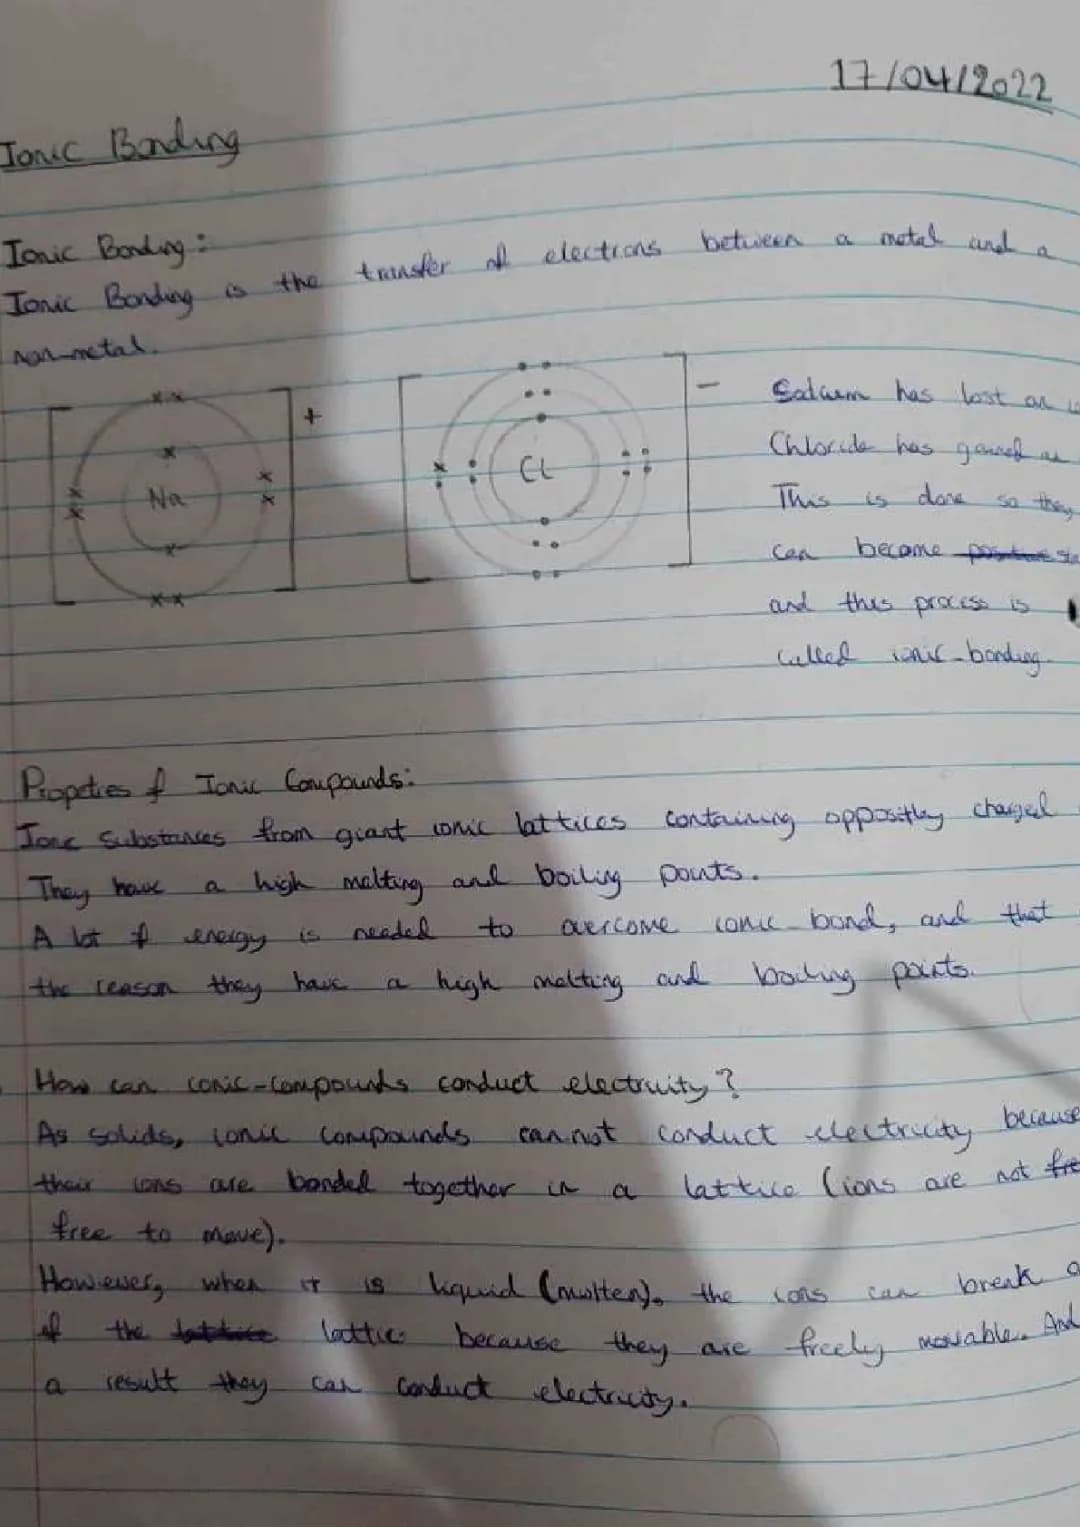 17/04/2022
Ionic Bonding
Ionic Bonding:
Ionic Bonding is the transfer of electrons between a metal and a
non-metal.
+
-
Na
Cl
Sodium has lost an
Chloride has gained an
This is done so they
can become
and this process is
called ionic-bonding.
Propeties of Ionic Compounds:
Ionc substances from giant ionic lattices containing oppositley charged
They have a high melting and boiling points.
A lot of energy is needed to overcome ionic bond, and that
the reason they have a high melting and boiling points.
How can ionic-compounds conduct electruity?
As solids, ionic compounds cannot conduct electricity because
their ions are bonded together in a lattice (ions are not fre
free to move).
However, when it is liquid (molten), the ions can break
of the lattice lattice because they are freely movable. And
a result they can conduct electricity.